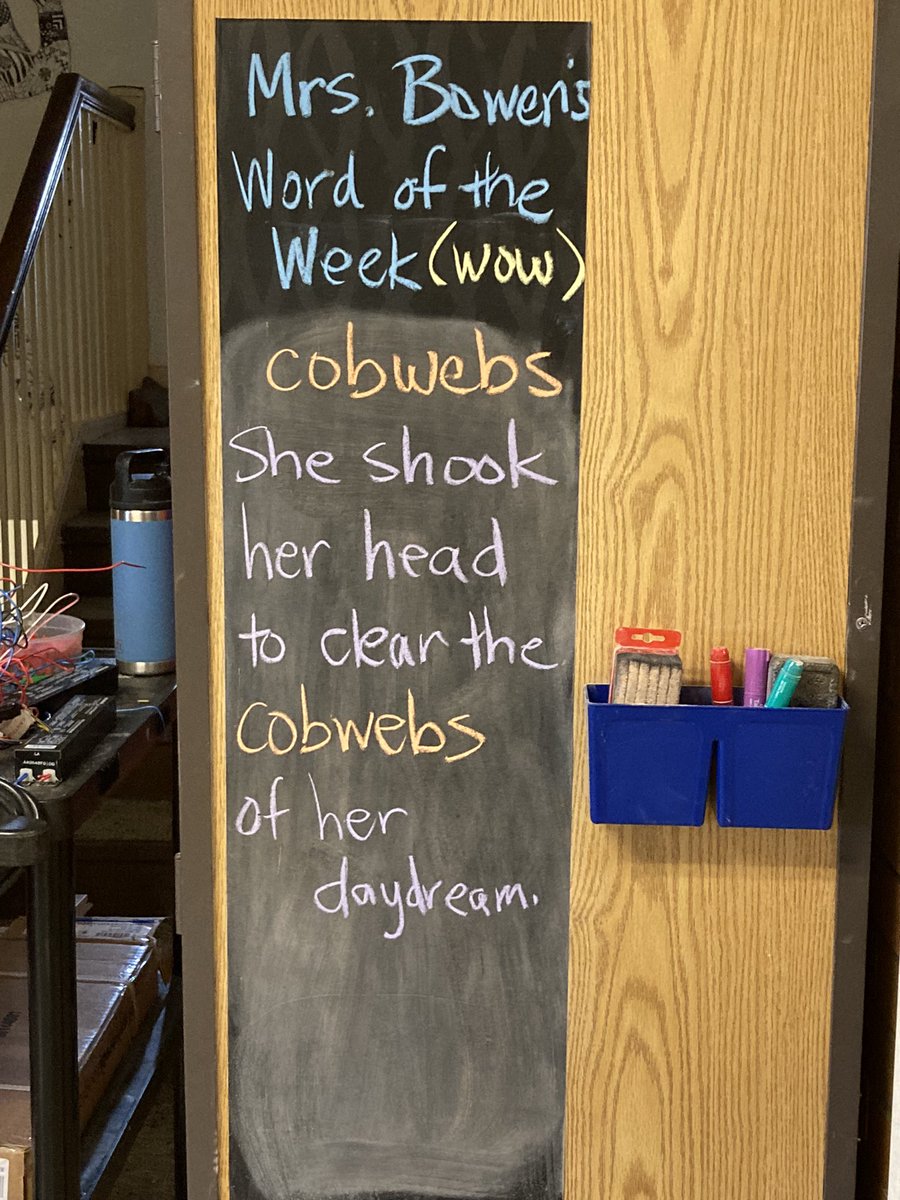 Mrs. Bowen's
Word of the
Week (WOW)
cobwebs
She shook
her head
to clear the
cobwebs
of her
daydream.